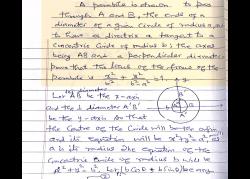 A parabola is drawn to pass
through A and B, the ends of a
diameter of a given circle of radius a, and
to have as directrix a tangent to a
concentric circle of radius b; the axes
being AB and a perpendicular diameter,
prove that the locus of the focus of the
parabola is x²/b² + y²/b²-a² = 1
Let AB be the x-axis
and the ⊥ diameter A'B'
be the y-axis so that
the centre of the circle will be the origin,
and its equation will be x²+y²=a², as
a is its radius. The equation of the
concentric circle of radius b will be
x²+y²=b². Let (b cosθ, b sinθ) be any